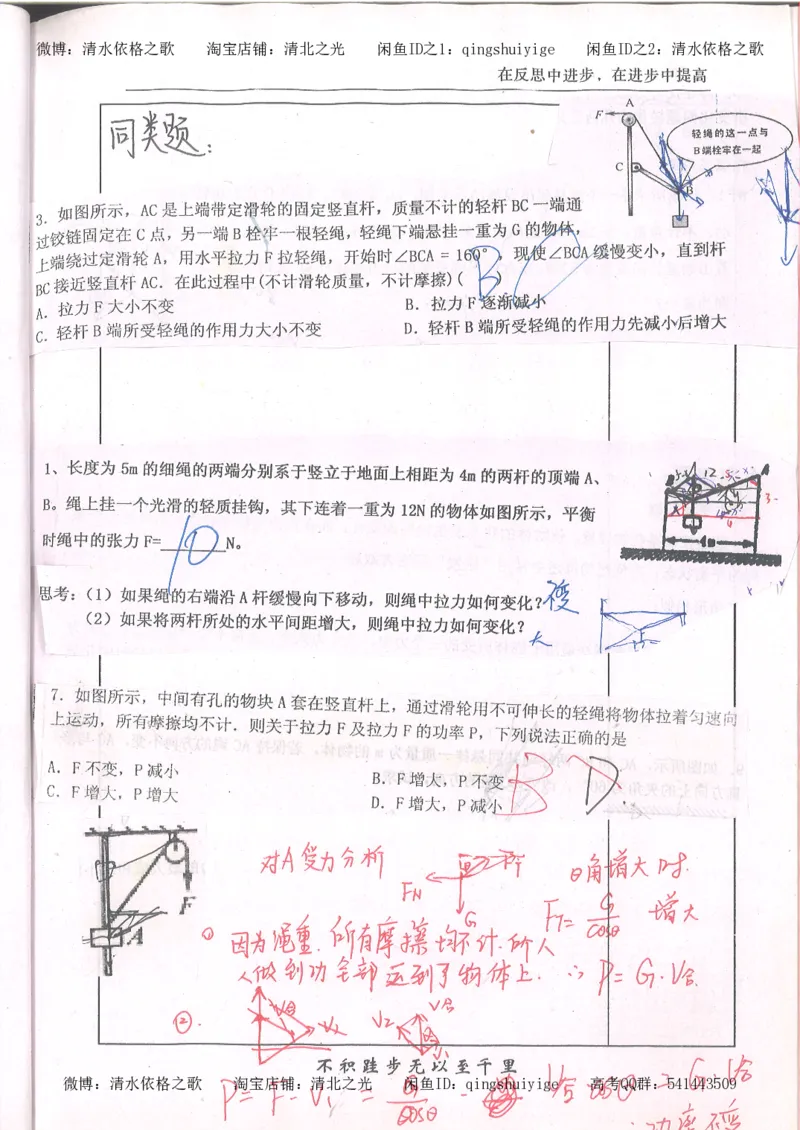 微博：清水依格之歌 淘宝店铺：清北之光 闲鱼ID之1：qingshuiyige 闲鱼ID之2：清水依格之歌
在反思中进步，在进步中提高
同类题：
A
F
轻绳的这一点与
B端栓牢在一起
C
B
3．如图所示，AC是上端带定滑轮的固定竖直杆，质量不计的轻杆BC一端通
过铰链固定在C点，另一端B栓牢一根轻绳，轻绳下端悬挂一重为G的物体，
上端绕过定滑轮A，用水平拉力F拉轻绳，开始时∠BCA = 160°，现使∠BCA缓慢变小，直到杆
BC接近竖直杆AC．在此过程中(不计滑轮质量，不计摩擦)( B )
A．拉力F大小不变 B．拉力F逐渐减小
C．轻杆B端所受轻绳的作用力大小不变 D．轻杆B端所受轻绳的作用力先减小后增大
1、长度为5m的细绳的两端分别系于竖立于地面上相距为4m的两杆的顶端A、
B。绳上挂一个光滑的轻质挂钩，其下连着一重为12N的物体如图所示，平衡
时绳中的张力F=10N。
4m
思考：（1）如果绳的右端沿A杆缓慢向下移动，则绳中拉力如何变化？
（2）如果将两杆所处的水平间距增大，则绳中拉力如何变化？
大
7．如图所示，中间有孔的物块A套在竖直杆上，通过滑轮用不可伸长的轻绳将物体拉着匀速向
上运动，所有摩擦均不计．则关于拉力F及拉力F的功率P，下列说法正确的是
A．F不变，P减小 B．F增大，P不变 B D
C．F增大，P增大 D．F增大，P减小
F
A
对A受力分析
FT
FN
G
θ角增大时.
FT= G/cosθ 增大
① 因为绳重.所有摩擦均不计.所人
人做到功全部送到了物体上. ∴ P=G·V合
②.
V合
V2
不积跬步无以至千里
微博：清水依格之歌 淘宝店铺：清北之光 闲鱼ID：qingshuiyige 高考QQ群：541443509
P= F·V1 = G/cosθ · V合 cosθ = G·V合